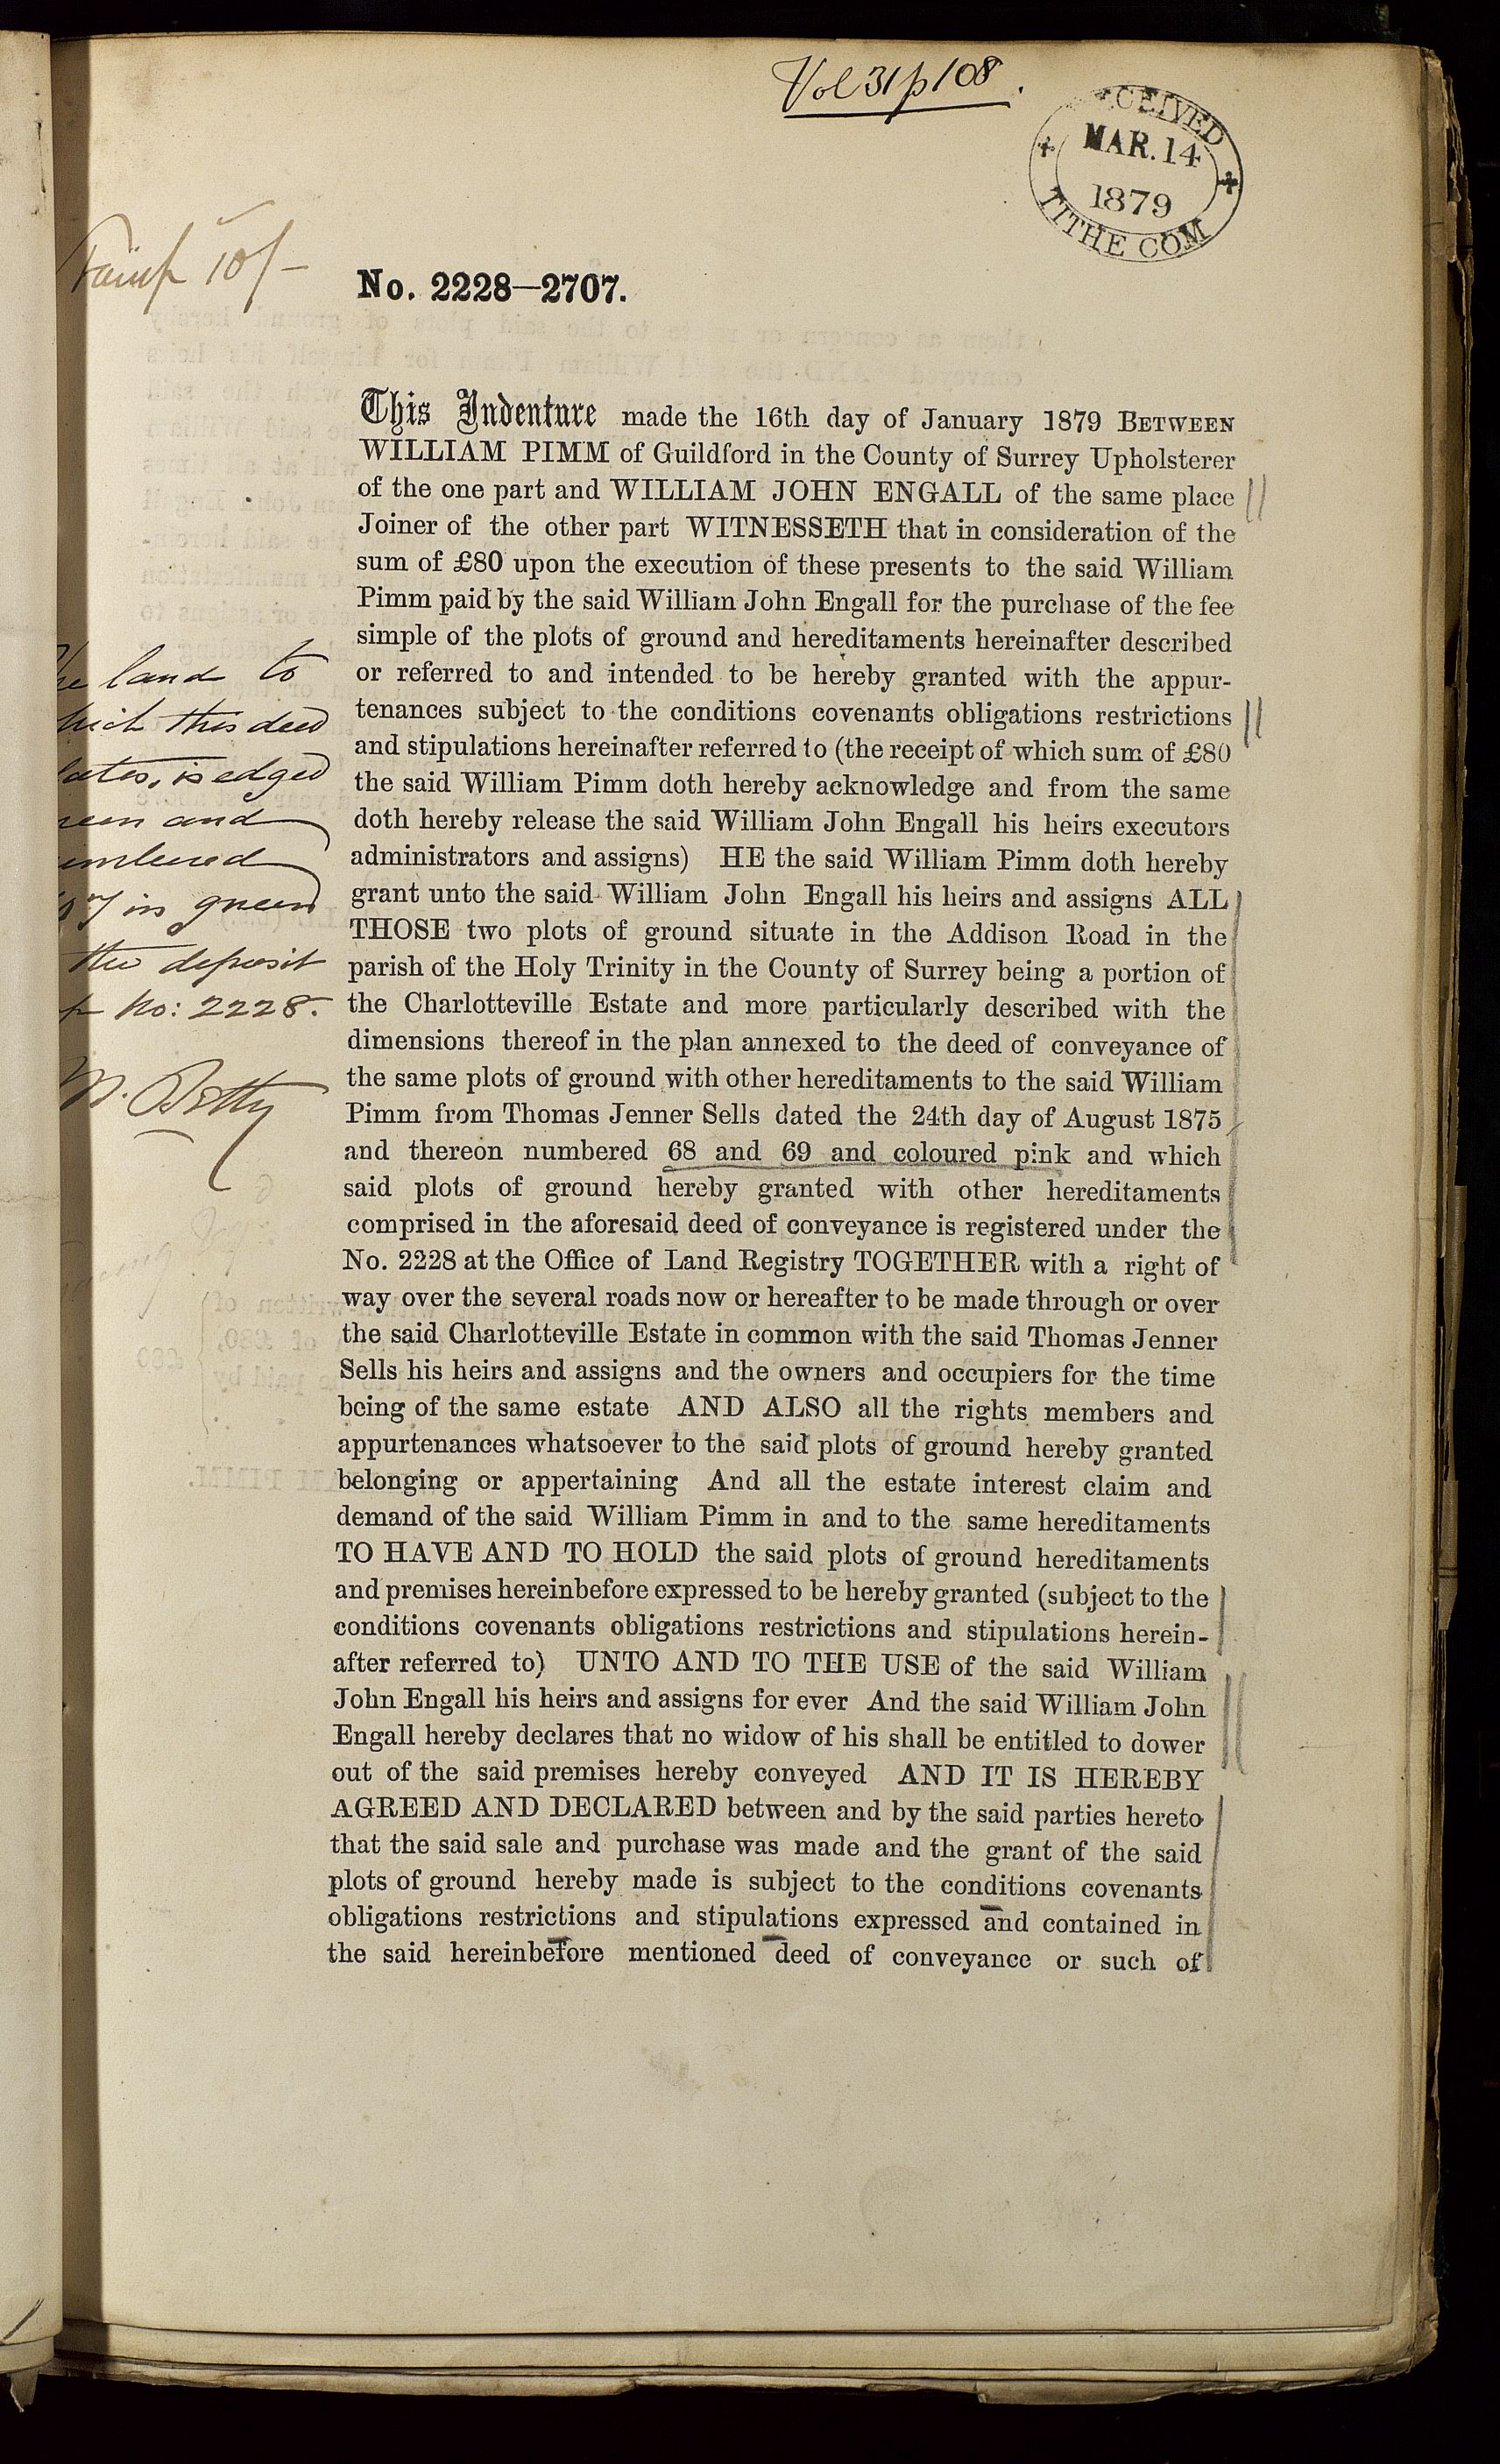 Vol 31 p 108.
RECEIVED
MAR. 14
1879
TITHE COM
10/-
No. 2228—2707.
This Indenture made the 16th day of January 1879 BETWEEN
WILLIAM PIMM of Guildford in the County of Surrey Upholsterer
of the one part and WILLIAM JOHN ENGALL of the same place
Joiner of the other part WITNESSETH that in consideration of the
sum of £80 upon the execution of these presents to the said William
Pimm paid by the said William John Engall for the purchase of the fee
simple of the plots of ground and hereditaments hereinafter described
or referred to and intended to be hereby granted with the appur-
tenances subject to the conditions covenants obligations restrictions
and stipulations hereinafter referred to (the receipt of which sum of £80
the said William Pimm doth hereby acknowledge and from the same
doth hereby release the said William John Engall his heirs executors
administrators and assigns) HE the said William Pimm doth hereby
grant unto the said William John Engall his heirs and assigns ALL
THOSE two plots of ground situate in the Addison Road in the
parish of the Holy Trinity in the County of Surrey being a portion of
the Charlotteville Estate and more particularly described with the
dimensions thereof in the plan annexed to the deed of conveyance of
the same plots of ground with other hereditaments to the said William
Pimm from Thomas Jenner Sells dated the 24th day of August 1875
and thereon numbered 68 and 69 and coloured pink and which
said plots of ground hereby granted with other hereditaments
comprised in the aforesaid deed of conveyance is registered under the
No. 2228 at the Office of Land Registry TOGETHER with a right of
way over the several roads now or hereafter to be made through or over
the said Charlotteville Estate in common with the said Thomas Jenner
Sells his heirs and assigns and the owners and occupiers for the time
being of the same estate AND ALSO all the rights members and
appurtenances whatsoever to the said plots of ground hereby granted
belonging or appertaining And all the estate interest claim and
demand of the said William Pimm in and to the same hereditaments
TO HAVE AND TO HOLD the said plots of ground hereditaments
and premises hereinbefore expressed to be hereby granted (subject to the
conditions covenants obligations restrictions and stipulations herein-
after referred to) UNTO AND TO THE USE of the said William
John Engall his heirs and assigns for ever And the said William John
Engall hereby declares that no widow of his shall be entitled to dower
out of the said premises hereby conveyed AND IT IS HEREBY
AGREED AND DECLARED between and by the said parties hereto
that the said sale and purchase was made and the grant of the said
plots of ground hereby made is subject to the conditions covenants
obligations restrictions and stipulations expressed and contained in
the said hereinbefore mentioned deed of conveyance or such of
land to
this deed
is edged
and
in green
the deposit
No: 2228.